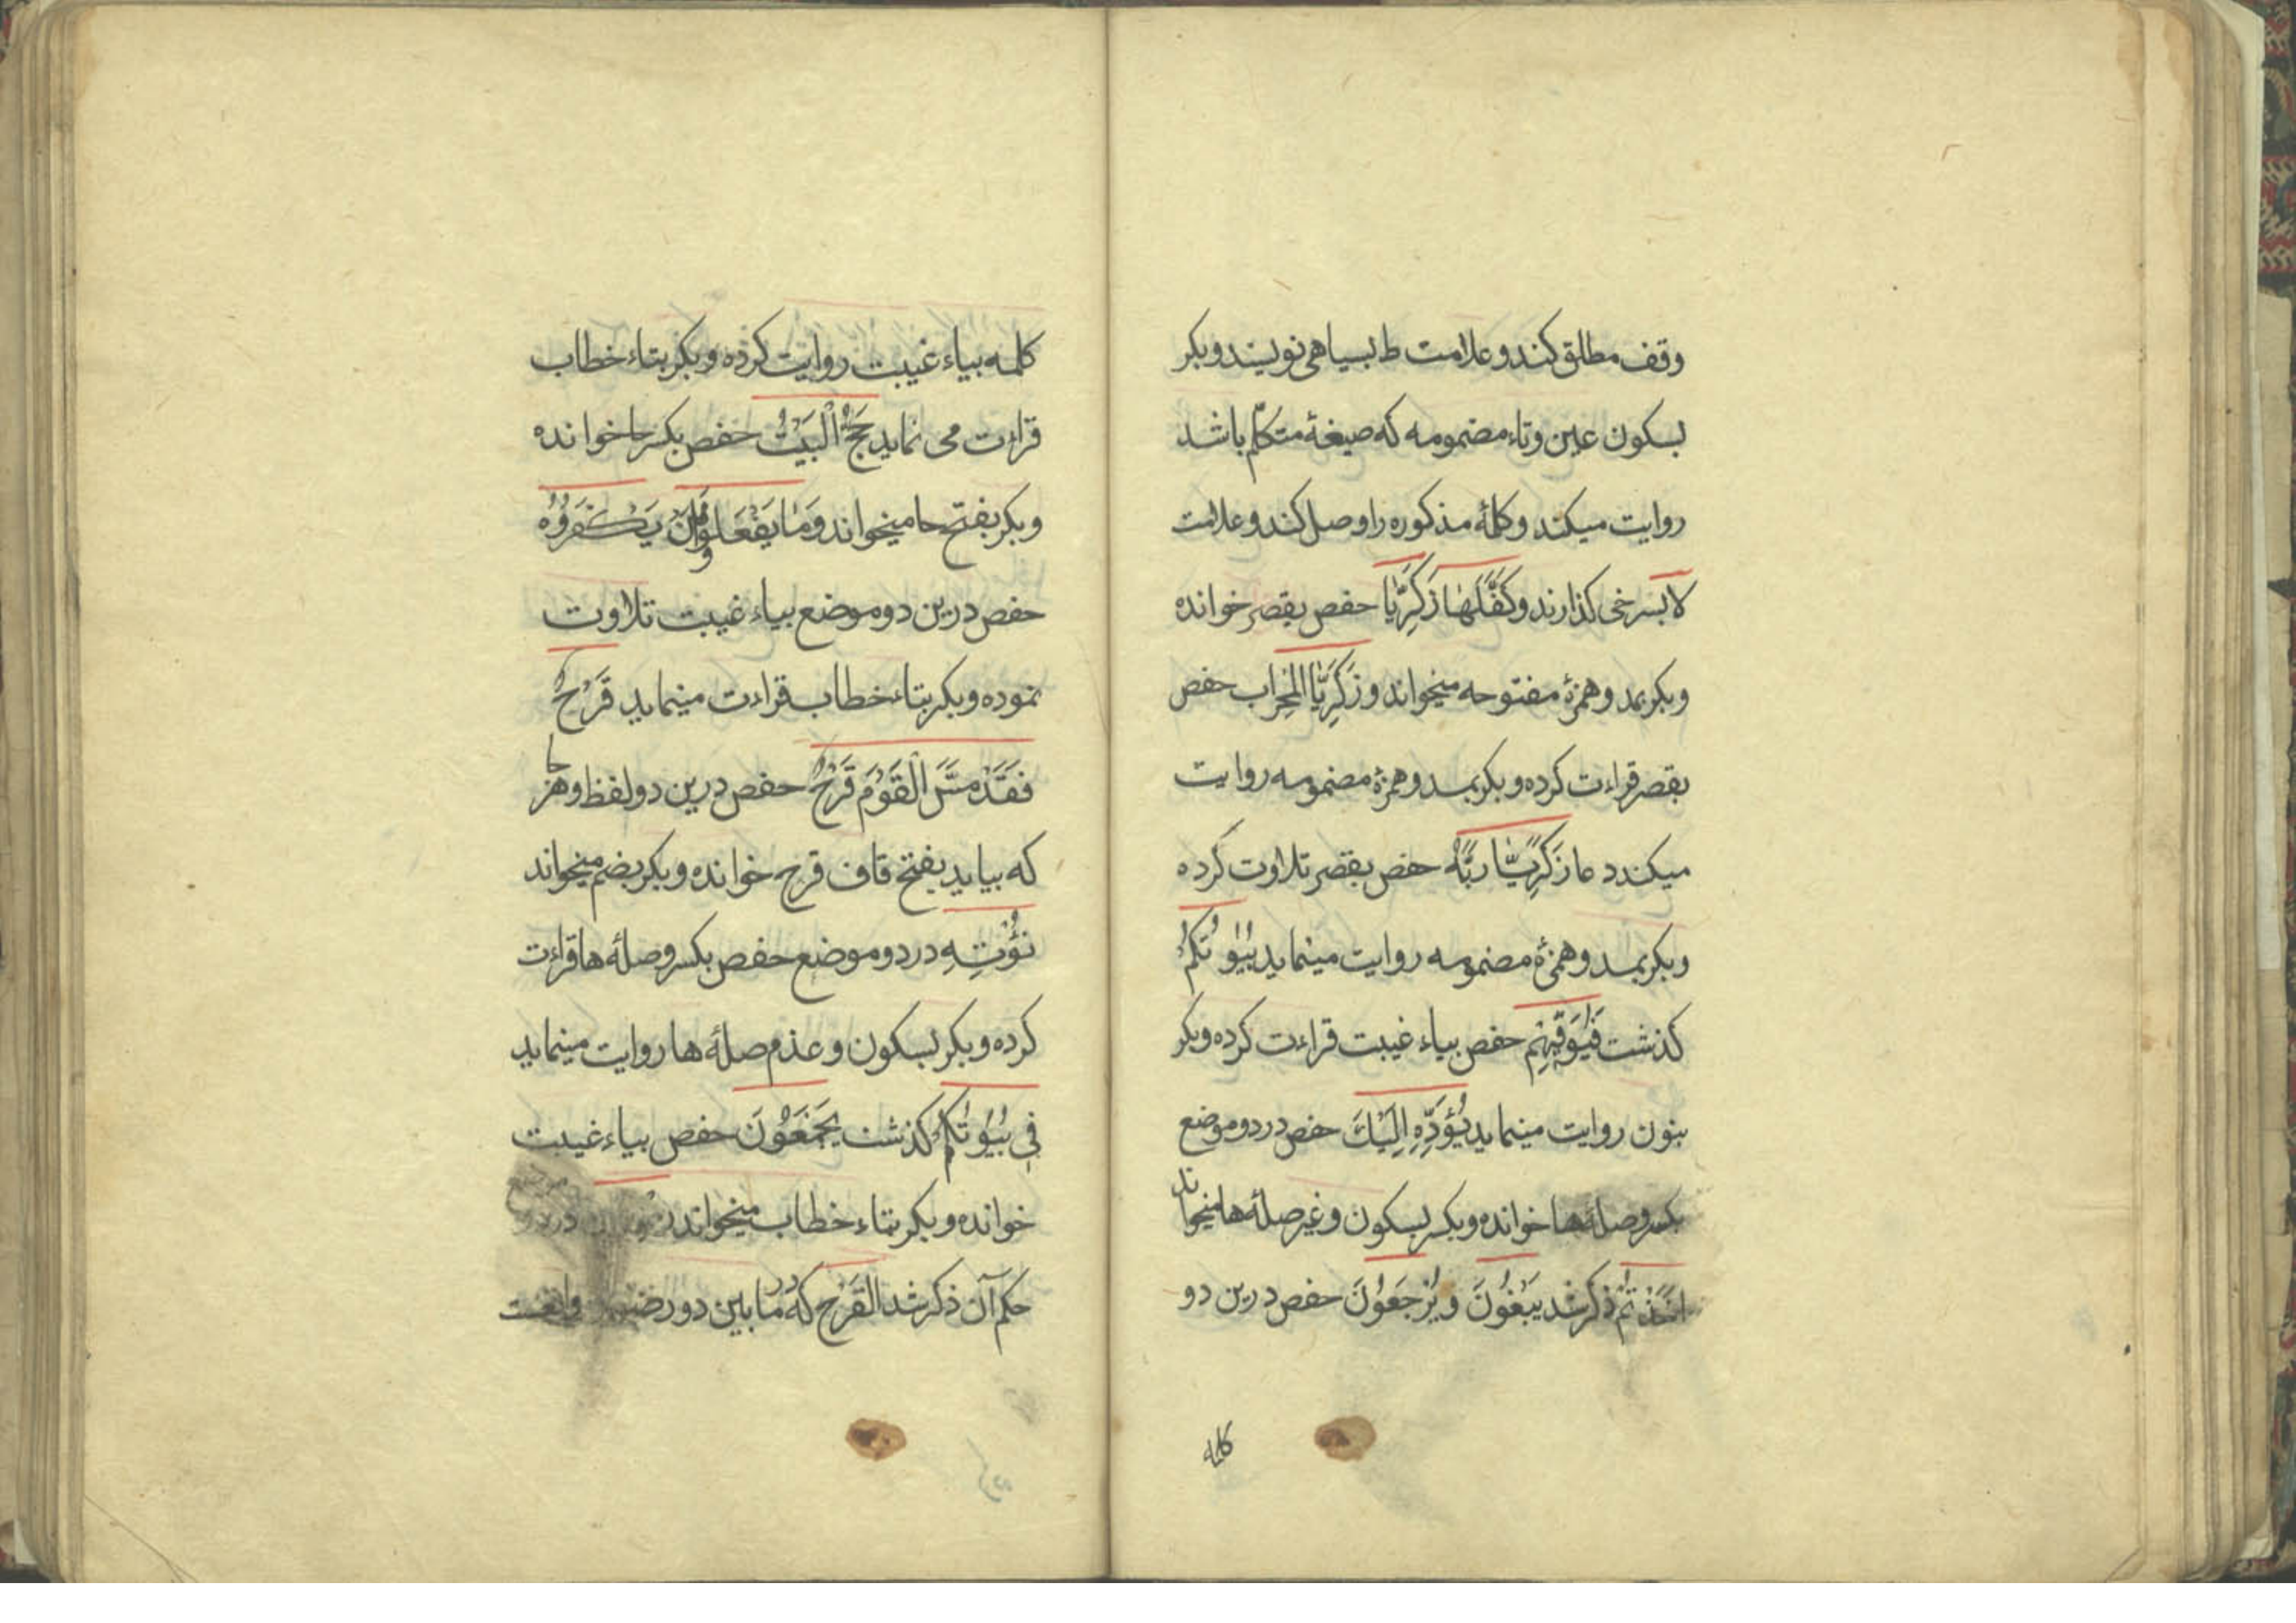 وقف مطلق کند و علامت ط بسیاهی نویسند و بکر
بسکون عین و تاء مضمومه که صیغهٔ متکلّم باشد
روایت میکند و کلمهٔ مذکوره را وصل کند و علامت
لا بسرخی کذارند وَکَفَّلَهٰا زَکَرِیّٰا حفص بقصر خوانده
و بکر بمد و همزهٔ مفتوحه میخواند و زَکَرِیّٰا الْمِحْرٰاب حفص
بقصر قراءت کرده و بکر بمد و همزهٔ مضمومه روایت
میکند دعا زَکَرِیّٰا رَبَّهُ حفص بقصر تلاوت کرده
و بکر بمد و همزهٔ مضمومه روایت مینماید بُیُوتِکُمْ
کذشت فَیُوَفِّیهِمْ حفص بیاء غیبت قراءت کرده و بکر
بنون روایت مینماید یُؤَدِّهِ اِلَیْكَ حفص در دو موضع
بکسر و صلهٔ ها خوانده و بکر بسکون و غیر صلهٔ ها میخواند
اَخَذْتُمْ ذکر شد یَبْغُونَ وَ یُرْجَعُونَ حفص درین دو
کلمه
کلمه بیاء غیبت روایت کرده و بکر بتاء خطاب
قراءت می نماید حِجُّ الْبَیْتِ حفص بکسر حا خوانده
و بکر بفتح حا میخواند وَمٰا یَفْعَلُوا فَلَنْ یُکْفَرُوهُ
حفص درین دو موضع بیاء غیبت تلاوت
نموده و بکر بتاء خطاب قراءت مینماید قَرْحٌ
فَقَدْ مَسَّ الْقَوْمَ قَرْحٌ حفص درین دو لفظ و هر جا
که بیاید بفتح قاف قرح خوانده و بکر بضم میخواند
نُؤْتِهِ در دو موضع حفص بکسر و صلهٔ ها قراءت
کرده و بکر بسکون و عدم صلهٔ ها روایت مینماید
فِی بُیُوتِکُمْ کذشت یَجْمَعُونَ حفص بیاء غیبت
خوانده و بکر بتاء خطاب میخواند
حکم آن ذکر شد القَرْح که در ما بین دو واقعست